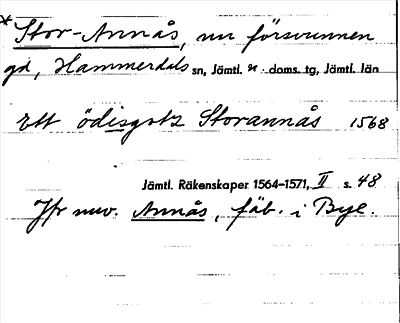 * Stor-Annås, nu försvunnen
gd, Hammerdals sn, Jämtl. n. doms. tg, Jämtl. län
Ett ödisgotz Storannås 1568
Jämtl. Räkenskaper 1564–1571, II s. 48
Jfr nuv. Annås, fäb. i Bye.